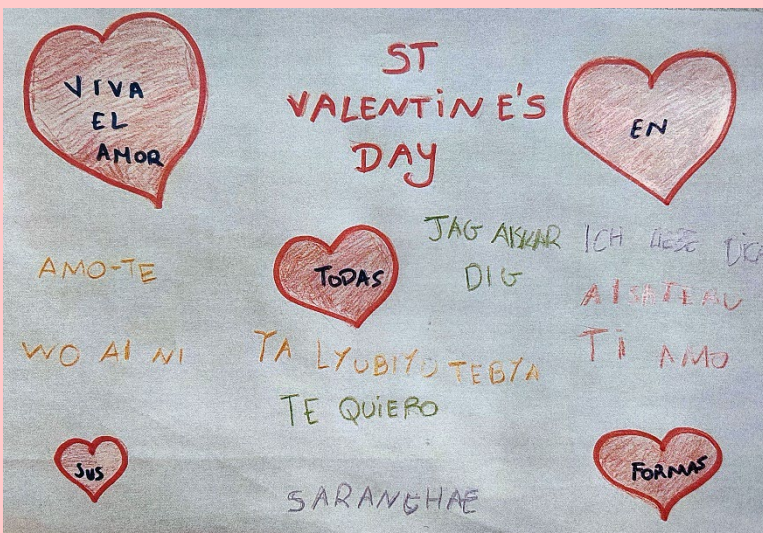 VIVA
EL
AMOR
ST
VALENTINE'S
DAY
EN
TODAS
JAG ÄLSKAR
DIG
ICH LIEBE DICH
AMO-TE
AISHTERU
WO AI NI
YA LYUBIYU TEBYA
TI AMO
TE QUIERO
SUS
FORMAS
SARANGHAE